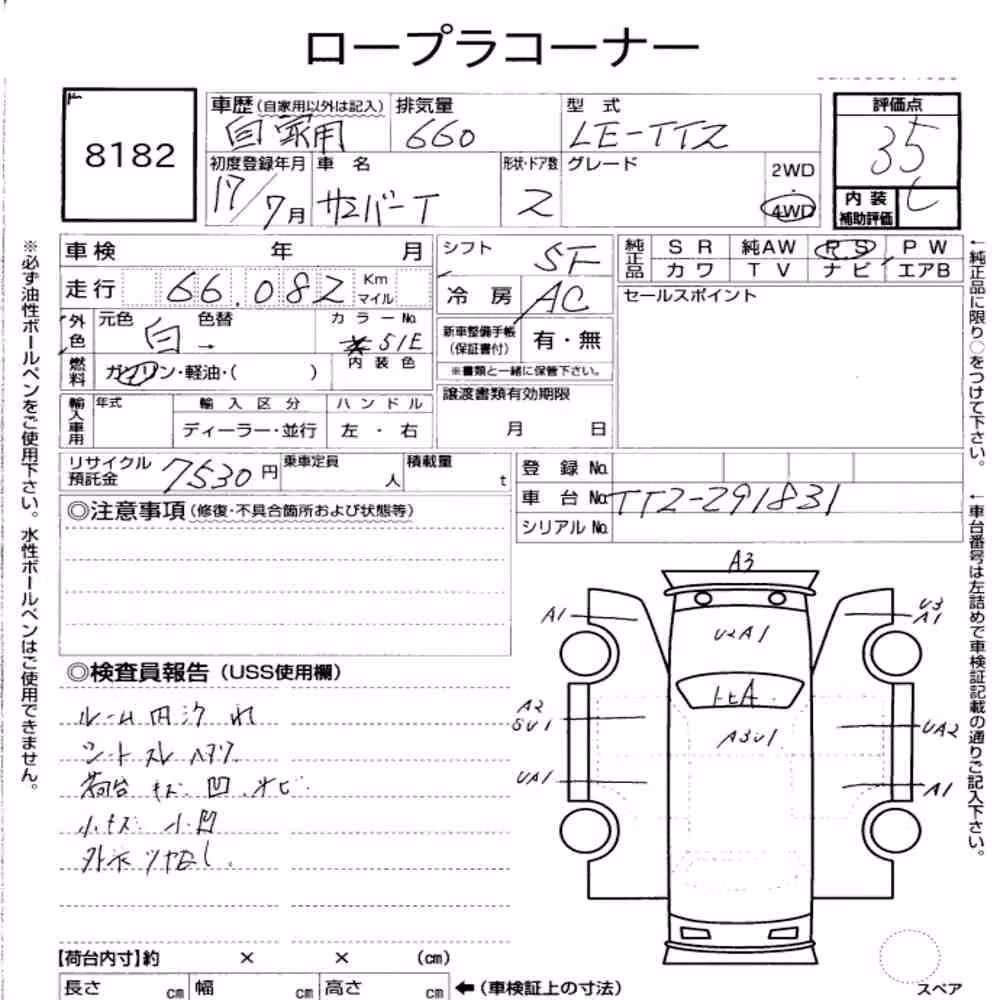 ロープラコーナー
8182
車歴(自家用以外は記入) 排気量 型式 評価点
自家用 660 LE-TT2 35
初度登録年月 車名 形状・ドア数 グレード 2WD
・
4WD
17/7月 サンバーT 2
内装
補助評価 C
車検 年 月
シフト 5F
純正品 SR 純AW PS PW
カワ TV ナビ エアB
走行 66.082 Km
マイル
冷房 AC
セールスポイント
外色 元色 白 → 色替 カラーNo.
51E
新車整備手帳
(保証書付) 有・無
燃料 ガソリン・軽油・( ) 内装色
※書類と一緒に保管下さい。
輸入車用 年式 輸入区分 ハンドル
ディーラー・並行 左・右
譲渡書類有効期限
月 日
リサイクル
預託金 7530円 乗車定員 人 積載量 t
登録No.
車台No. TT2-291831
シリアルNo.
◎注意事項(修復・不具合箇所および状態等)
◎検査員報告(USS使用欄)
ルーム内汚れ
シートスレ ハタリ
荷台 キズ 凹 サビ
小キズ 小凹
外示ツヤなし
A3
A1
U3
A1
U2A1
トビA
A2
SU1
A3U1
UA2
UA1
A1
【荷台内寸】約 × × (cm)
長さ cm 幅 cm 高さ cm ←(車検証上の寸法)
スペア
※必ず油性ボールペンをご使用下さい。水性ボールペンはご使用できません。
←純正品に限り○をつけて下さい。
←車台番号は左詰めで車検証記載の通りご記入下さい。